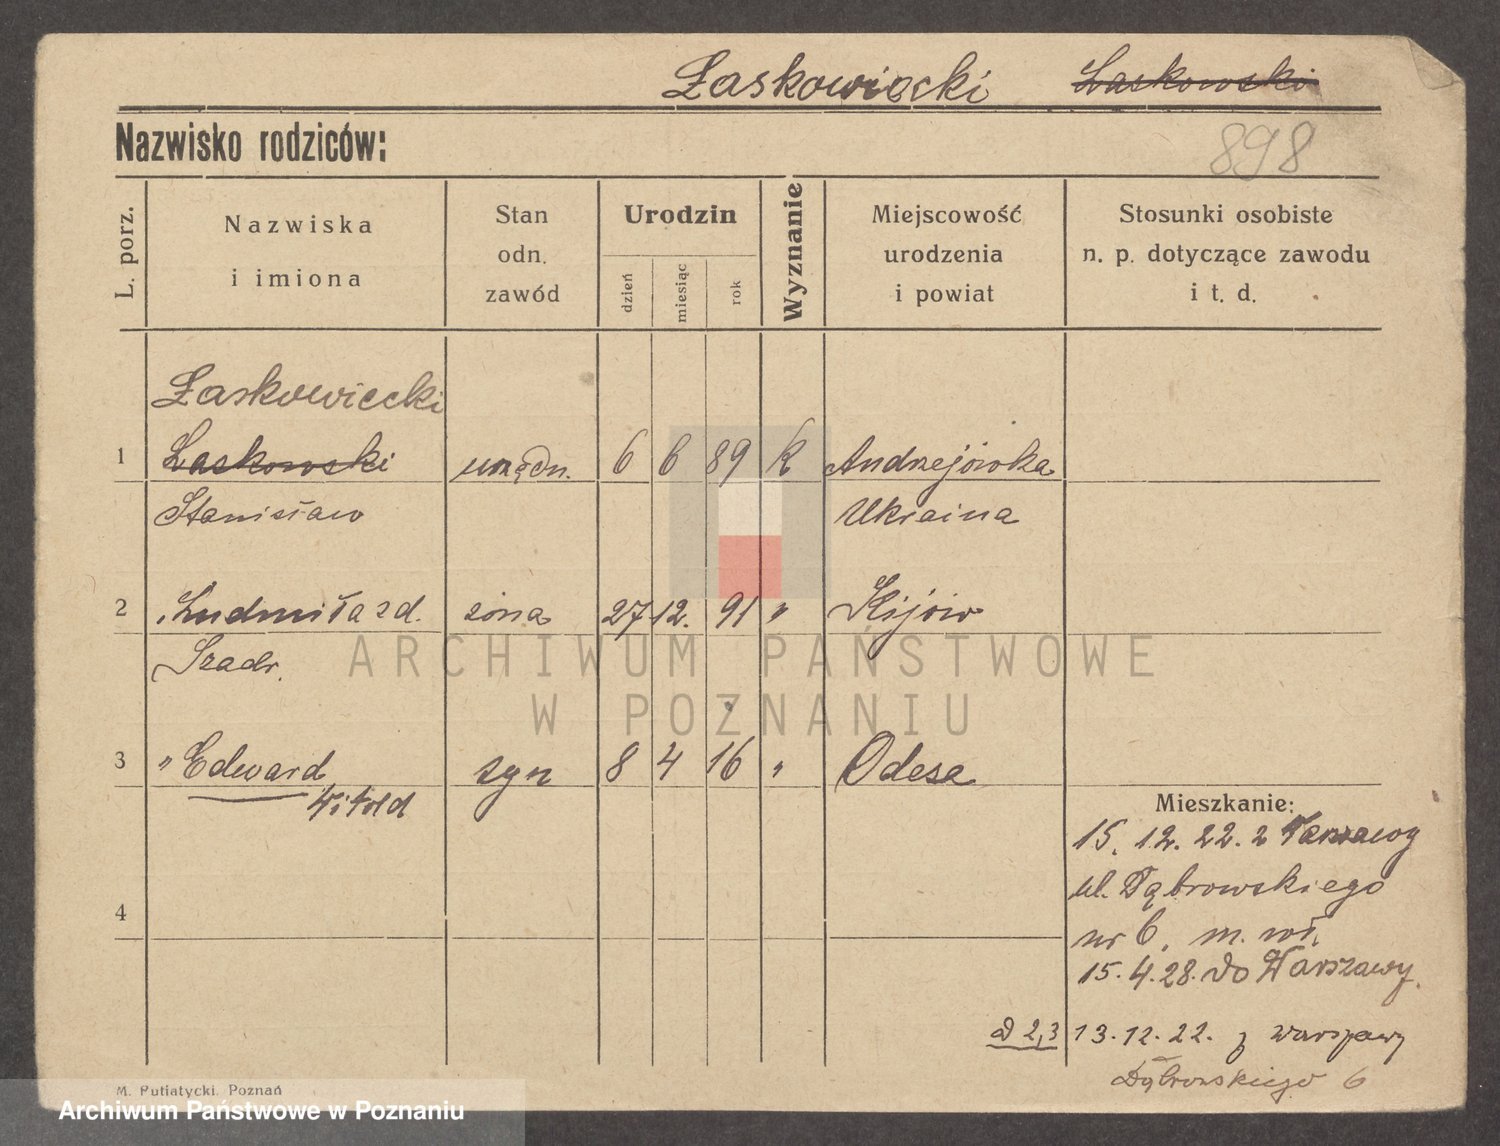 Łaskowiecki Łaskowski
Nazwisko rodziców:
898
L. porz.
Nazwiska
i imiona
Stan
odn.
zawód
Urodzin
dzień
miesiąc
rok
Wyznanie
Miejscowość
urodzenia
i powiat
Stosunki osobiste
n. p. dotyczące zawodu
i t. d.
Łaskowiecki
1 Łaskowski urzędn. 6 6 89 k Andrzejówka
Stanisław Ukraina
2 " Ludmiła zd. żona 27 12. 91 " Kijów
Szadr.
3 " Edward syn 8 4 16 " Odesa
Witold
Mieszkanie:
15. 12. 22. z Warszawy
ul. Dąbrowskiego
4
nr 6. m. wł.
15.4.28. do Warszawy.
ad 2,3 13.12.22. z Warszawy
Dąbrowskiego 6
M. Putiatycki. Poznań
ARCHIWUM PAŃSTWOWE
W POZNANIU
Archiwum Państwowe w Poznaniu